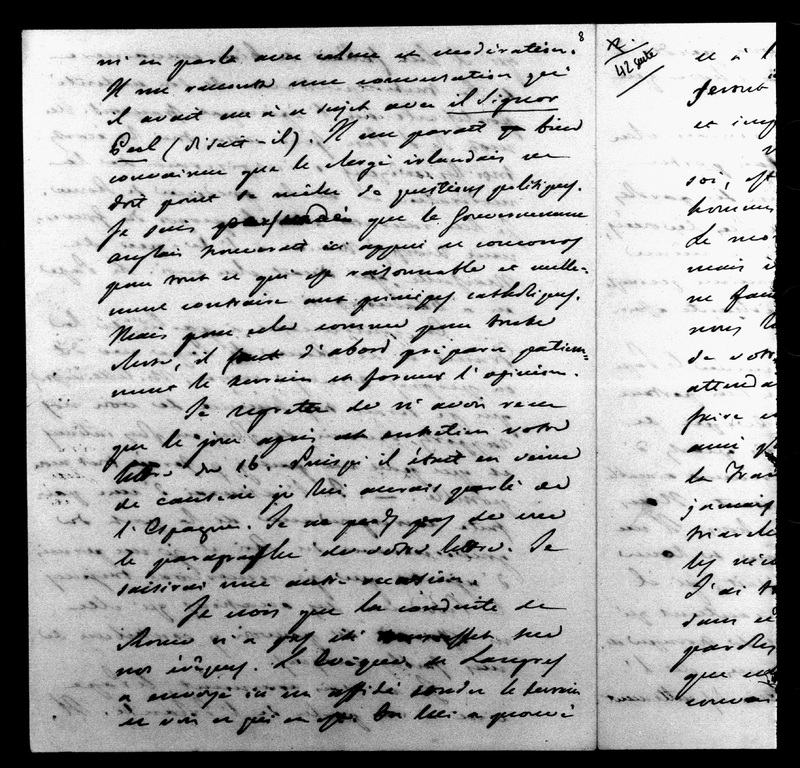 8
m'en parla avec calme et modération.
Il me raconta une conversation qu'
il avait eu à ce sujet avec il Signor
Peel (disait-il). Il me parait bien
convaincu que le clergé irlandais ne
doit point se mêler de questions politiques.
Je suis que le Gouvernement
anglais trouverait ici appui et concours
pour tout ce qui est raisonnable et nulle-
ment contraire aux principes catholiques.
Mais pour cela comme pour toute
chose, il faut d'abord préparer patiem-
ment le terrain et former l'opinion.
Je regrette de n'avoir reçu
que le jour après cet entretien votre
lettre du 16. Puisqu'il était en veine
de causerie je lui aurais parlé de
l'Espagne. Je ne perds pas de vue
le paragraphe de votre lettre. Je
saisirai une autre occasion.
Je crois que la conduite de
Rome n'a pas été sans effet sur
nos évêques. L'Evêque de Langres
a envoyé ici un affidé sonder le terrain
et voir ce qui en est. On lui a prouvé
42 suite
et à l
seront
et imp
soi, est
hommes
Le mo
mais i
ne fau
nous
de votr
attenda
faire
ami
la Fran
jamais
les
J'ai
dans
paroles
que